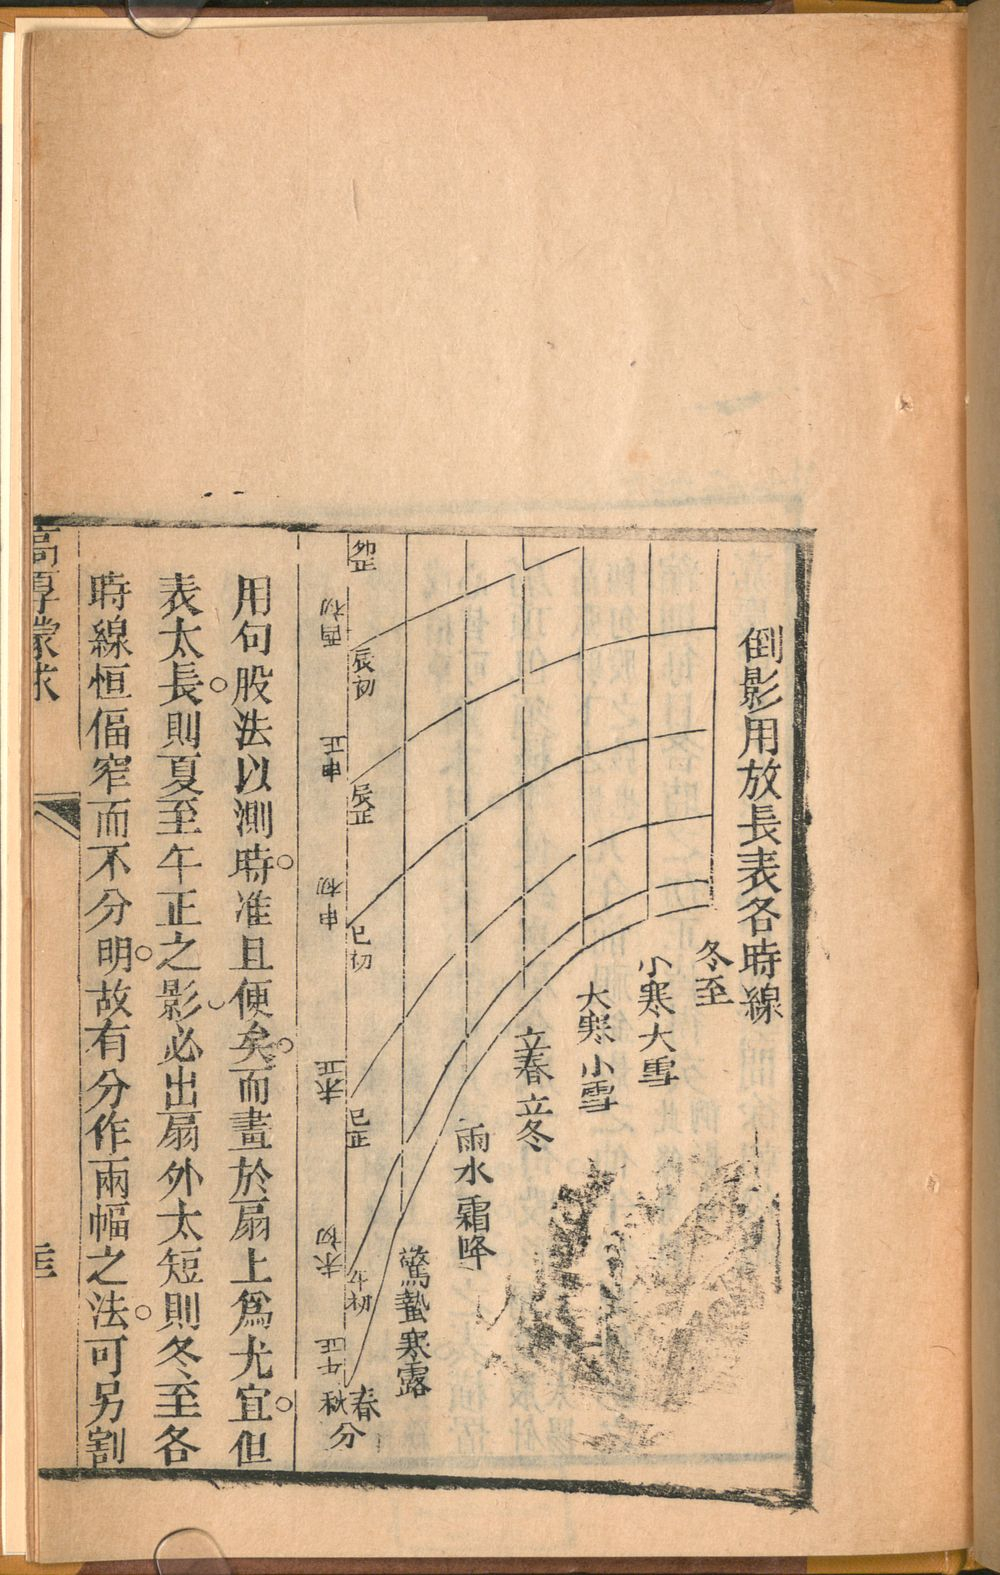 倒影用放長表各時線
冬至
小寒大雪
大寒小雪
立春立冬
雨水霜降
驚蟄寒露
春
秋
分
卯正
辰初
辰正
巳初
巳正
午初
酉初
申正
申初
未正
未初
午正
用句股法以測時。准且便矣。而畫於扇上爲尤宜。但
表太長。則夏至午正之影必出扇外太短則冬至各
時線恒偪窄而不分明。故有分作兩幅之法。可另割
高厚蒙求